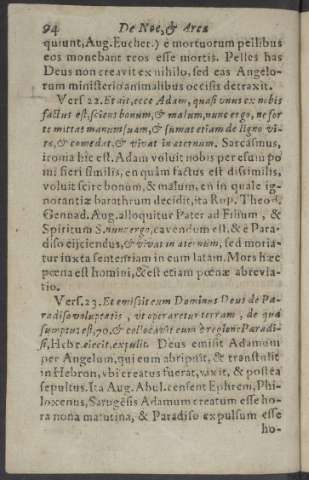 94 De Noe, & Arca
quiunt, Aug. Eucher.) è mortuorum pellibus
eos monebant reos esse mortis. Pelles has
Deus non creavit ex nihilo, sed eas Angelo-
rum ministerio animalibus occisis detraxit.
Vers 22. Et ait, ecce Adam, quasi unus ex nobis
factus est, sciens bonum, & malum, nunc ergo, ne for
te mittat manum suam, & sumat etiam de ligno vi-
tæ, & comedat, & vivat in æternum. Sarcasmus,
ironia hic est. Adam voluit nobis per esum po
mi fieri similis, en quàm factus est dissimilis,
voluit scire bonum, & malum, en in quale ig-
norantiæ barathrum decidit, ita Rup. Theod.
Gennad. Aug. alloquitur Pater ad Filium, &
Spiritum S. nunc ergo, cavendum est, & è Para-
diso eijciendus, & vivat in æternum, sed moria-
tur iuxta sententiam in eum latam. Mors hæc
pœna est homini, & est etiam pœnæ abrevia-
tio.
Vers. 23. Et emisit eum Dominus Deus de Pa-
radiso voluptatis, ut operaretur terram, de qua
sumptus est, 70. & collocavit eum è regione Paradi-
si, Hebr. eiecit, expulit. Deus emisit Adamum
per Angelum, qui eum abripuit, & transtulit
in Hebron, ubi creatus fuerat, vixit, & postea
sepultus. Ita Aug. Abul. censent Ephrem, Phi-
loxenus, Sarugêsis Adamum creatum esse ho-
ra nona matutina, & Paradiso expulsum esse
ho-